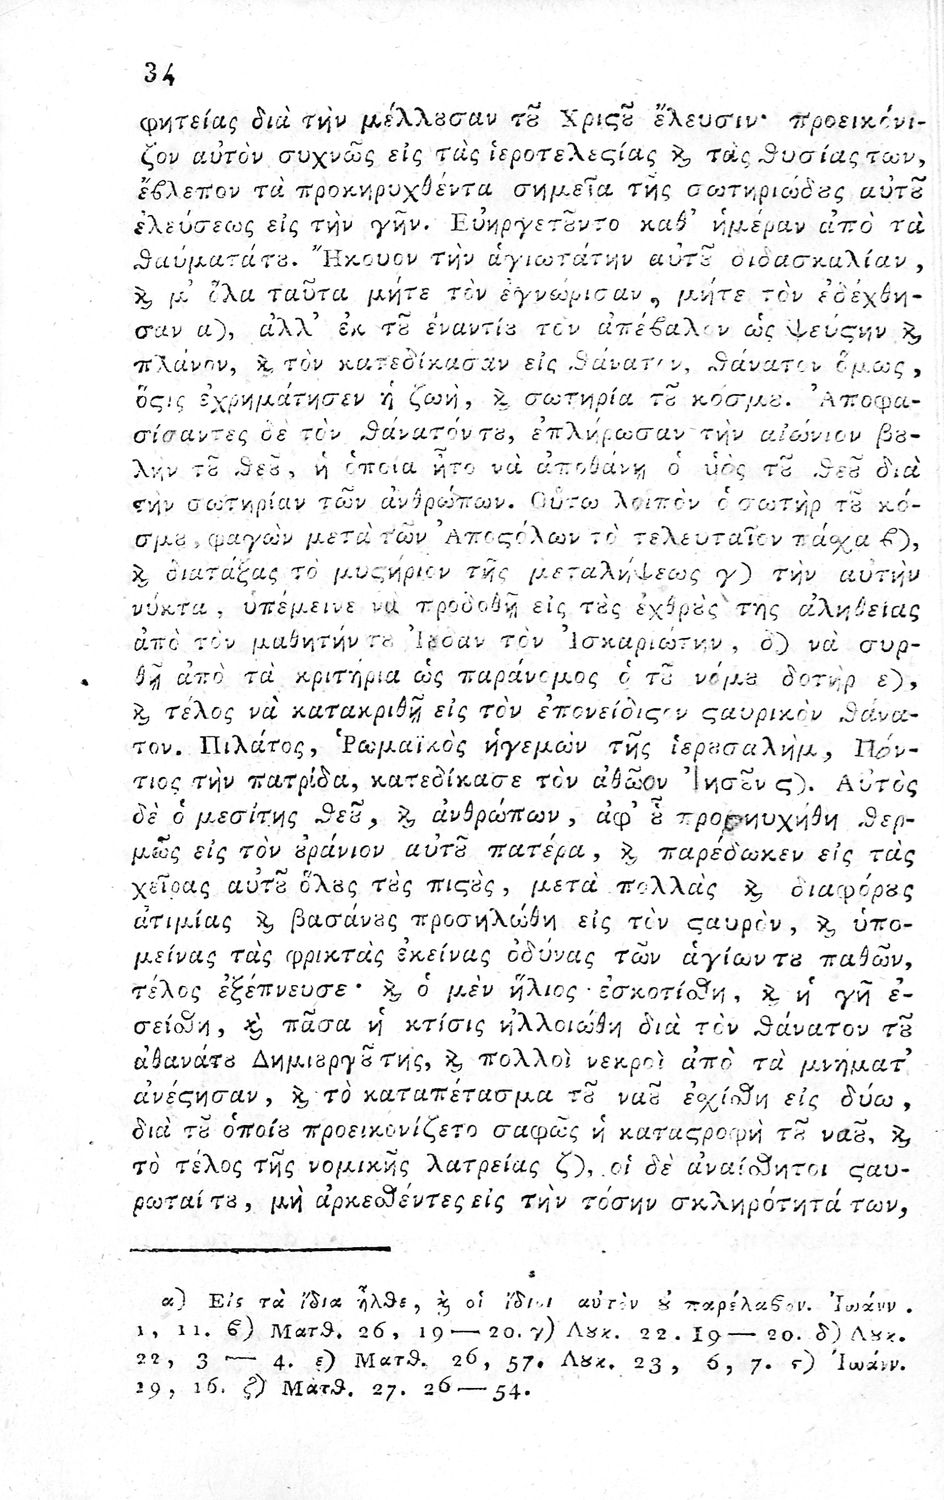 34
φητείας διὰ τὴν μέλλȣσαν τȣ͂ Χριϛȣ͂ ἔλευσιν· προεικόνι-
ζον αὐτὸν συχνῶς εἰς τὰς ἱεροτελεϛίας ϗ τὰς ϑυσίας των,
ἔϐλεπον τὰ προκηρυχθέντα σημεῖα τῆς σωτηριώδȣς αὐτȣ͂
ἐλεύσεως εἰς τὴν γῆν. Εὐηργετȣ͂ντο καθ᾽ ἡμέραν ἀπὸ τὰ
ϑαύματάτȣ. Ἤκουον τὴν ἁγιωτάτην αὐτȣ͂ διδασκαλίαν,
ϗ μ᾽ ὅλα ταῦτα μήτε τὸν ἐγνώρισαν, μήτε τὸν ἐδέχθη-
σαν α), ἀλλ᾽ ἐκ τȣ͂ ἐναντίȣ τὸν ἀπέϐαλον ὡς ψεύϛην ϗ
πλάνον, ϗ τὸν κατεδίκασαν εἰς ϑάνατον, ϑάνατον ὅμως,
ὅϛις ἐχρημάτησεν ἡ ζωὴ, ϗ σωτηρία τȣ͂ κόσμȣ. Ἀποφα-
σίσαντες δὲ τὸν ϑάνατόντȣ, ἐπλήρωσαν τὴν αἰώνιον βȣ-
λὴν τȣ͂ ϑεȣ͂, ἡ ὁποία ἦτο νὰ ἀποθάνῃ ὁ ὑιὸς τȣ͂ ϑεȣ͂ διὰ
τὴν σωτηρίαν τῶν ἀνθρώπων. Οὕτω λοιπὸν ὁ σωτὴρ τȣ͂ κό-
σμȣ, φαγὼν μετὰ τῶν Ἀποϛόλων τὸ τελευταῖον πάσχα ϐ),
ϗ διατάξας τὸ μυϛήριον τῆς μεταλήψεως γ) τὴν αὐτὴν
νύκτα, ὑπέμεινε νὰ προδοθῇ εἰς τȣ̀ς ἐχθρȣ̀ς τῆς ἀληθείας
ἀπὸ τὸν μαθητήν τȣ Ἰȣ́δαν τὸν Ἰσκαριώτην, δ) νὰ συρ-
θῇ ἀπὸ τὰ κριτήρια ὡς παράνομος ὁ τȣ͂ νόμȣ δοτὴρ ε),
ϗ τέλος νὰ κατακριθῇ εἰς τὸν ἐπονείδιϛον ϛαυρικὸν ϑάνα-
τον. Πιλάτος, Ῥωμαϊκὸς ἡγεμὼν τῆς ἱερȣσαλὴμ, Πόν-
τιος τὴν πατρίδα, κατεδίκασε τὸν ἀθῶον Ἰησȣ͂ν ϛ). Αὐτὸς
δὲ ὁ μεσίτης ϑεȣ͂, ϗ ἀνθρώπων, ἀφ᾽ ȣ͗͂ προσηυχήθη ϑερ-
μῶς εἰς τὸν ȣ̓ράνιον αὐτȣ͂ πατέρα, ϗ παρέδωκεν εἰς τὰς
χεῖρας αὐτȣ͂ ὅλȣς τȣ̀ς πιϛȣ̀ς, μετὰ πολλὰς ϗ διαφόρȣς
ἀτιμίας ϗ βασάνȣς προσηλώθη εἰς τὸν ϛαυρὸν, ϗ ὑπο-
μείνας τὰς φρικτὰς ἐκείνας ὀδύνας τῶν ἁγίων τȣ παθῶν,
τέλος ἐξέπνευσε· ϗ ὁ μὲν ἥλιος ἐσκοτίσθη, ϗ ἡ γῆ ἐ-
σείσθη, ϗ πᾶσα ἡ κτίσις ἠλλοιώθη διὰ τὸν ϑάνατον τȣ͂
ἀθανάτȣ Δημιȣργȣ͂ της, ϗ πολλοὶ νεκροὶ ἀπὸ τὰ μνήματ᾽
ἀνέϛησαν, ϗ τὸ καταπέτασμα τȣ͂ ναȣ͂ ἐσχίσθη εἰς δύω,
διὰ τȣ͂ ὁποίȣ προεικονίζετο σαφῶς ἡ καταϛροφὴ τȣ͂ ναȣ͂, ϗ
τὸ τέλος τῆς νομικῆς λατρείας ζ), οἱ δὲ ἀναίσθητοι ϛαυ-
ρωταί τȣ, μὴ ἀρκεσθέντες εἰς τὴν τόσην σκληρότητά των,
α) Εἰς τὰ ἴδια ἦλϑε, ϗ οἱ ἴδιοι αὐτὸν ȣ̓ παρέλαϐον. Ἰωάνν.
1, 11. ϐ) Ματϑ. 26, 19 — 20. γ) Λȣκ. 22. 19 — 20. δ) Λȣκ.
22, 3 — 4. ε) Ματϑ. 26, 57. Λȣκ. 23, 6, 7. ϛ) Ἰωάνν.
19, 16. ζ) Ματϑ. 27. 26 — 54.